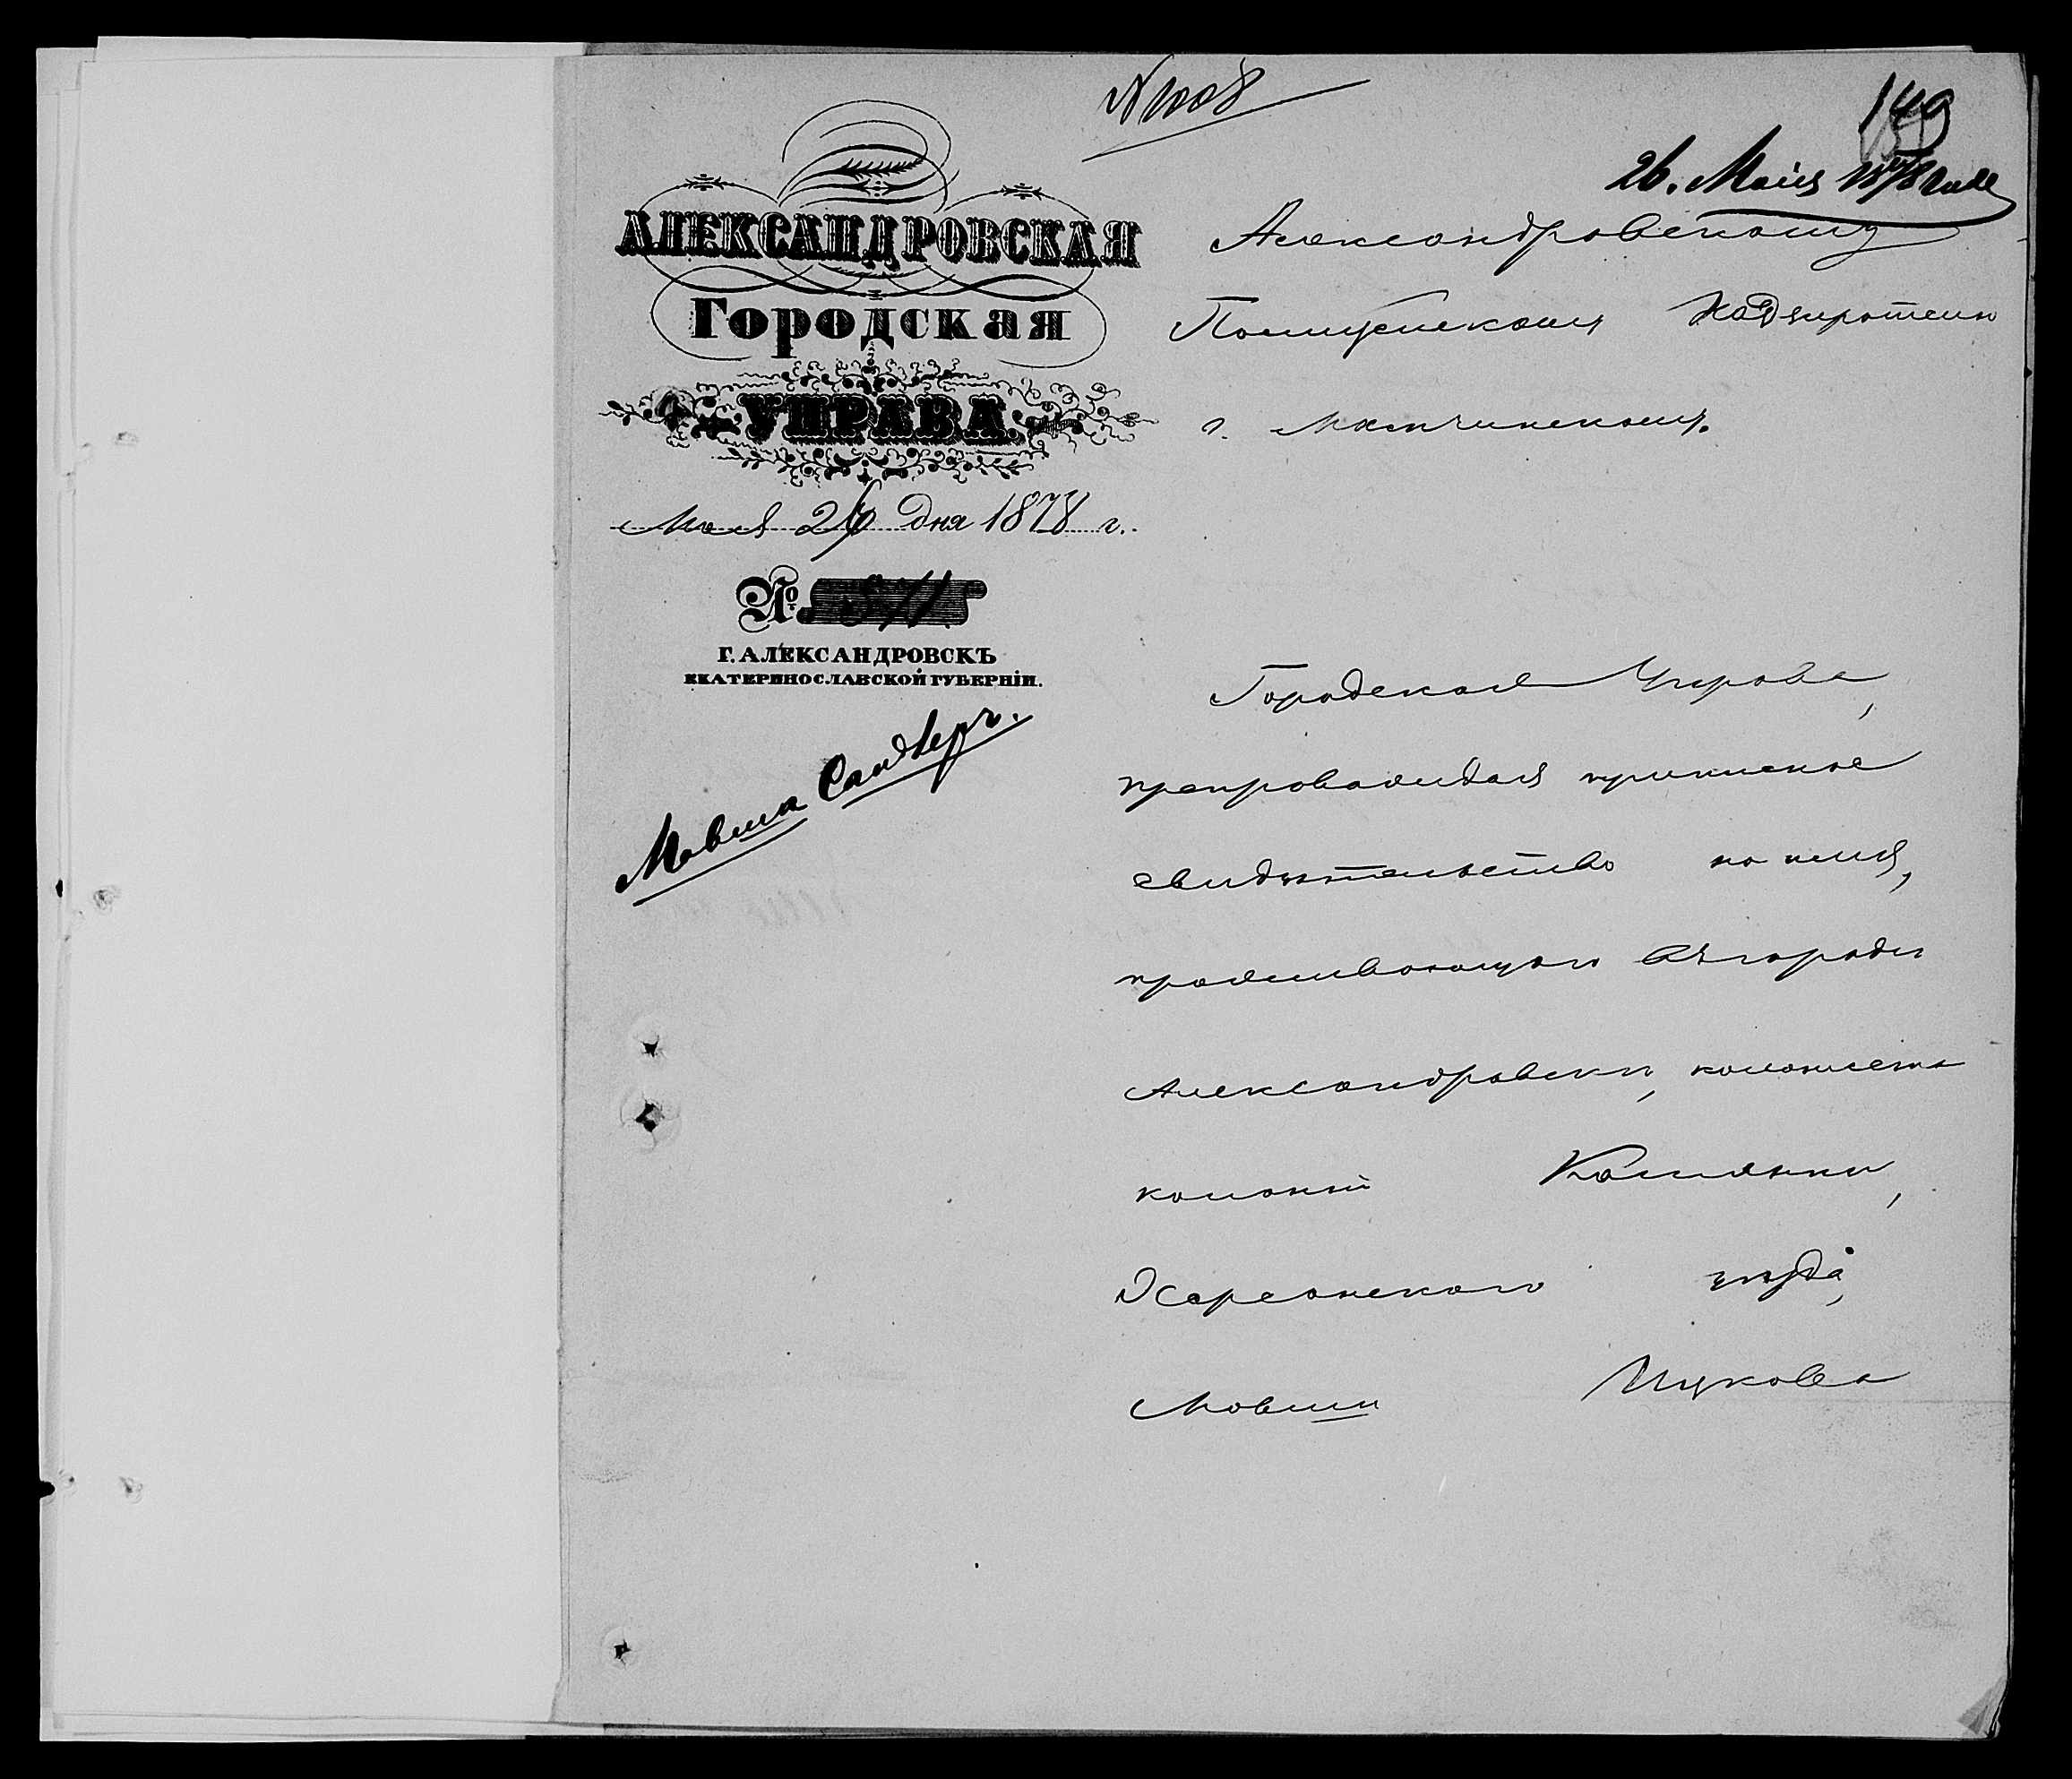 N 1008
149
26. Маія 1878 года
АЛЕКСАНДРОВСКАЯ
Городская
УПРАВА.
Мая 26 дня 1878 г.
№ 811.
Г. АЛЕКСАНДРОВСКЪ
ЕКАТЕРИНОСЛАВСКОЙ ГУБЕРНІИ.
Мовша Сандлеръ.
Александровскому
Полицейскому Надзирателю
г.
Городская Управа,
препровождая приписное
свидѣтельство на имя,
проживающаго въ городѣ
Александровскѣ, колониста
колоніи Камянки,
Херсонскаго уѣзда,
Мовши Ицкова